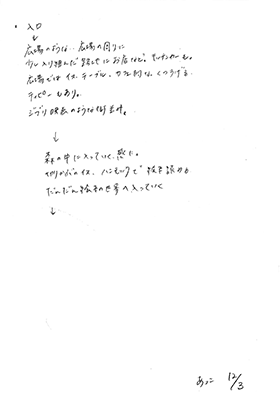 ・入口
↓
広場のような。広場の周りに
少し入り組んだ路地にお店など。キッチンカーも。
広場にはイス、テーブル、カフェ的な、くつろげる
ジブリ映画のような街並。
↓
森の中に入っていく感じ。
切りかぶのイス、ハンモックで
だんだん絵本の世界へ入っていく
↓
あっこ 12/3